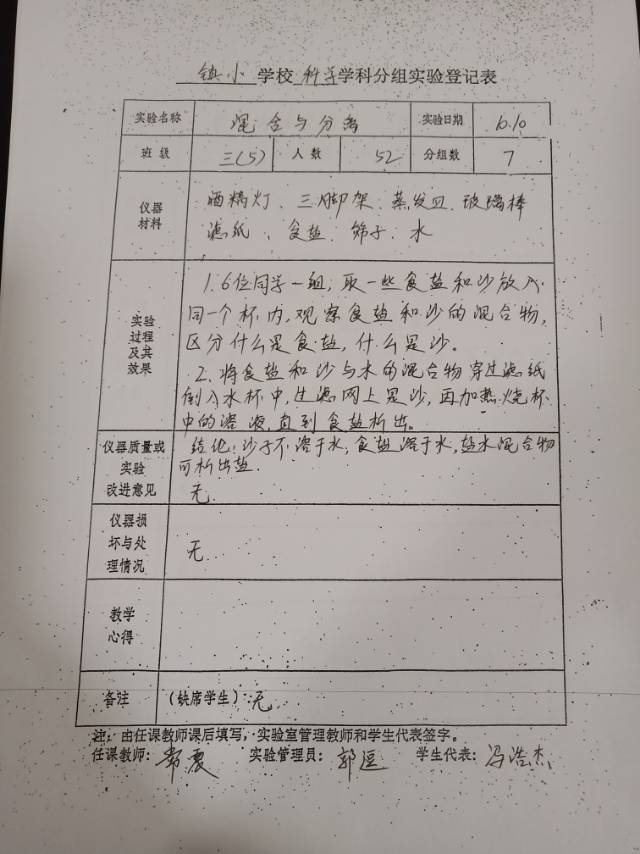 镇小 学校 科学 学科分组实验登记表
实验名称 混合与分离 实验日期 10.10
班级 三(5) 人数 52 分组数 7
仪器材料 酒精灯、三脚架、蒸发皿、玻璃棒
滤纸、食盐、筛子、水
实验过程及其效果
1.6位同学一组,取一些食盐和沙放入
同一个杯内,观察食盐和沙的混合物,
区分什么是食盐,什么是沙。
2、将食盐和沙与水的混合物穿过滤纸
倒入水杯中,过滤网上是沙,再加热烧杯
中的溶液,直到食盐析出。
仪器质量或实验改进意见
结论:沙子不溶于水,食盐溶于水,盐水混合物
可析出盐.
无
仪器损坏与处理情况 无
教学心得
备注 (缺席学生):无
注:由任课教师课后填写,实验室管理教师和学生代表签字。
任课教师: 实验管理员: 学生代表:冯浩杰